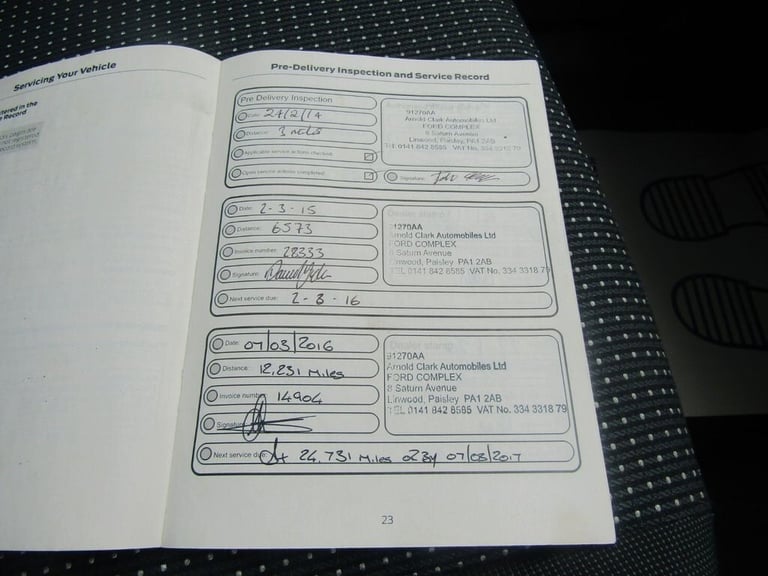 Servicing Your Vehicle
Pre-Delivery Inspection and Service Record
Pre Delivery Inspection
Date: 24/2/14
Distance:
Applicable service actions checked:
Open service actions completed:
Signature:
91270AA
Arnold Clark Automobiles Ltd
FORD COMPLEX
8 Saturn Avenue
Linwood, Paisley, PA1 2AB
TEL 0141 842 8585 VAT No. 334 3318 79
Date: 2-3-15
Distance: 6573
Invoice number: 28333
Signature:
Next service due: 2-3-16
Dealer stamp
91270AA
Arnold Clark Automobiles Ltd
FORD COMPLEX
8 Saturn Avenue
Linwood, Paisley PA1 2AB
TEL 0141 842 8585 VAT No. 334 3318 79
Date: 07/03/2016
Distance: 12,231 Miles
Invoice number 14904
Signature
Next service due: 24,731 Miles or By 07/03/2017
Dealer stamp
91270AA
Arnold Clark Automobiles Ltd
FORD COMPLEX
8 Saturn Avenue
Linwood, Paisley PA1 2AB
TEL 0141 842 8585 VAT No. 334 3318 79
23